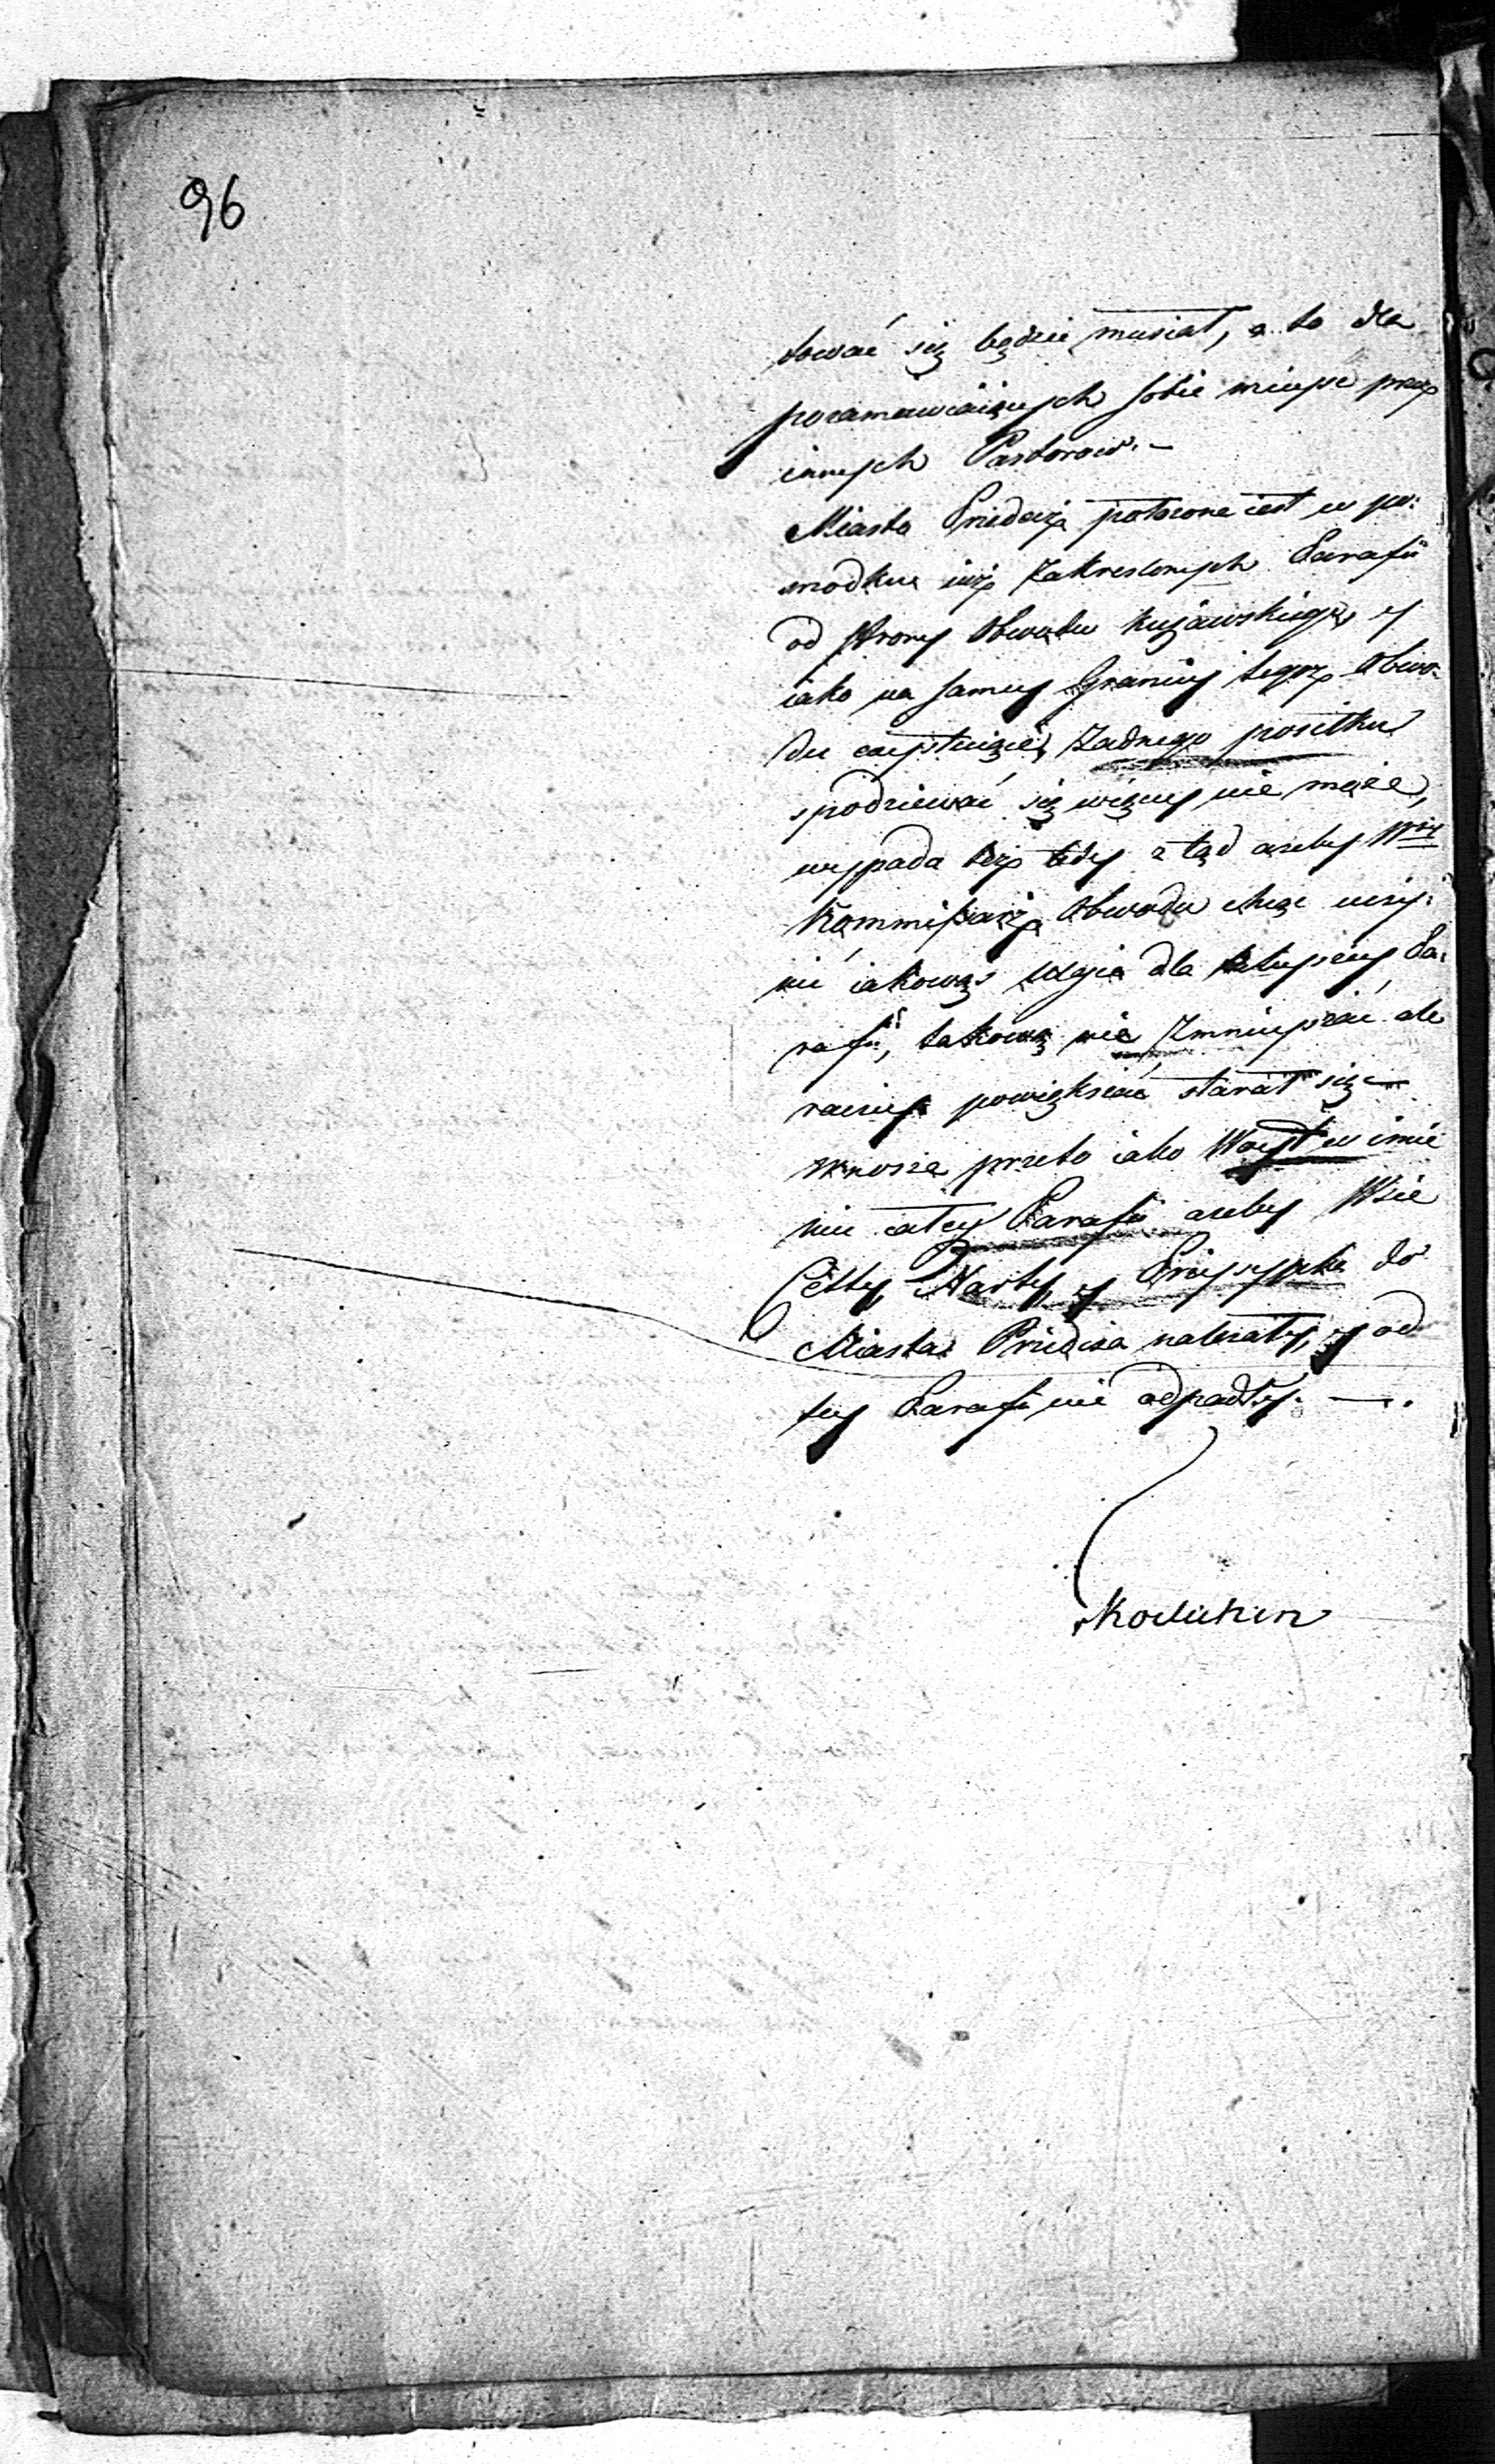 96
tować się będzie musiał, a to dla
pozamawianych sobie mieysc przez
innych Pastorow. –
Miasto Przedecz położone iest w po:
srodku iuż zakreslonych Parafii
od strony Obwodu Kujawskiego, y
iako na samey Granicy tegoż Obwo:
du żadnego posiłku
spodziewać się więcey nie może,
wypada też tedy z tąd ażeby Wny
Kommissarz Obwodu chcąc uczy:
nić iakowąś ulgę dla tuteyszey Pa:
rafii, takową nie zmnieyszać ale
raczey powiększać starał się –
wnoszę przeto iako Woyt w imie
niu całey Parafii ażeby Wsie
Cetty, Narty, y do
Miasta Przedcza należały, y od
tey Parafii nie odpadły. —.